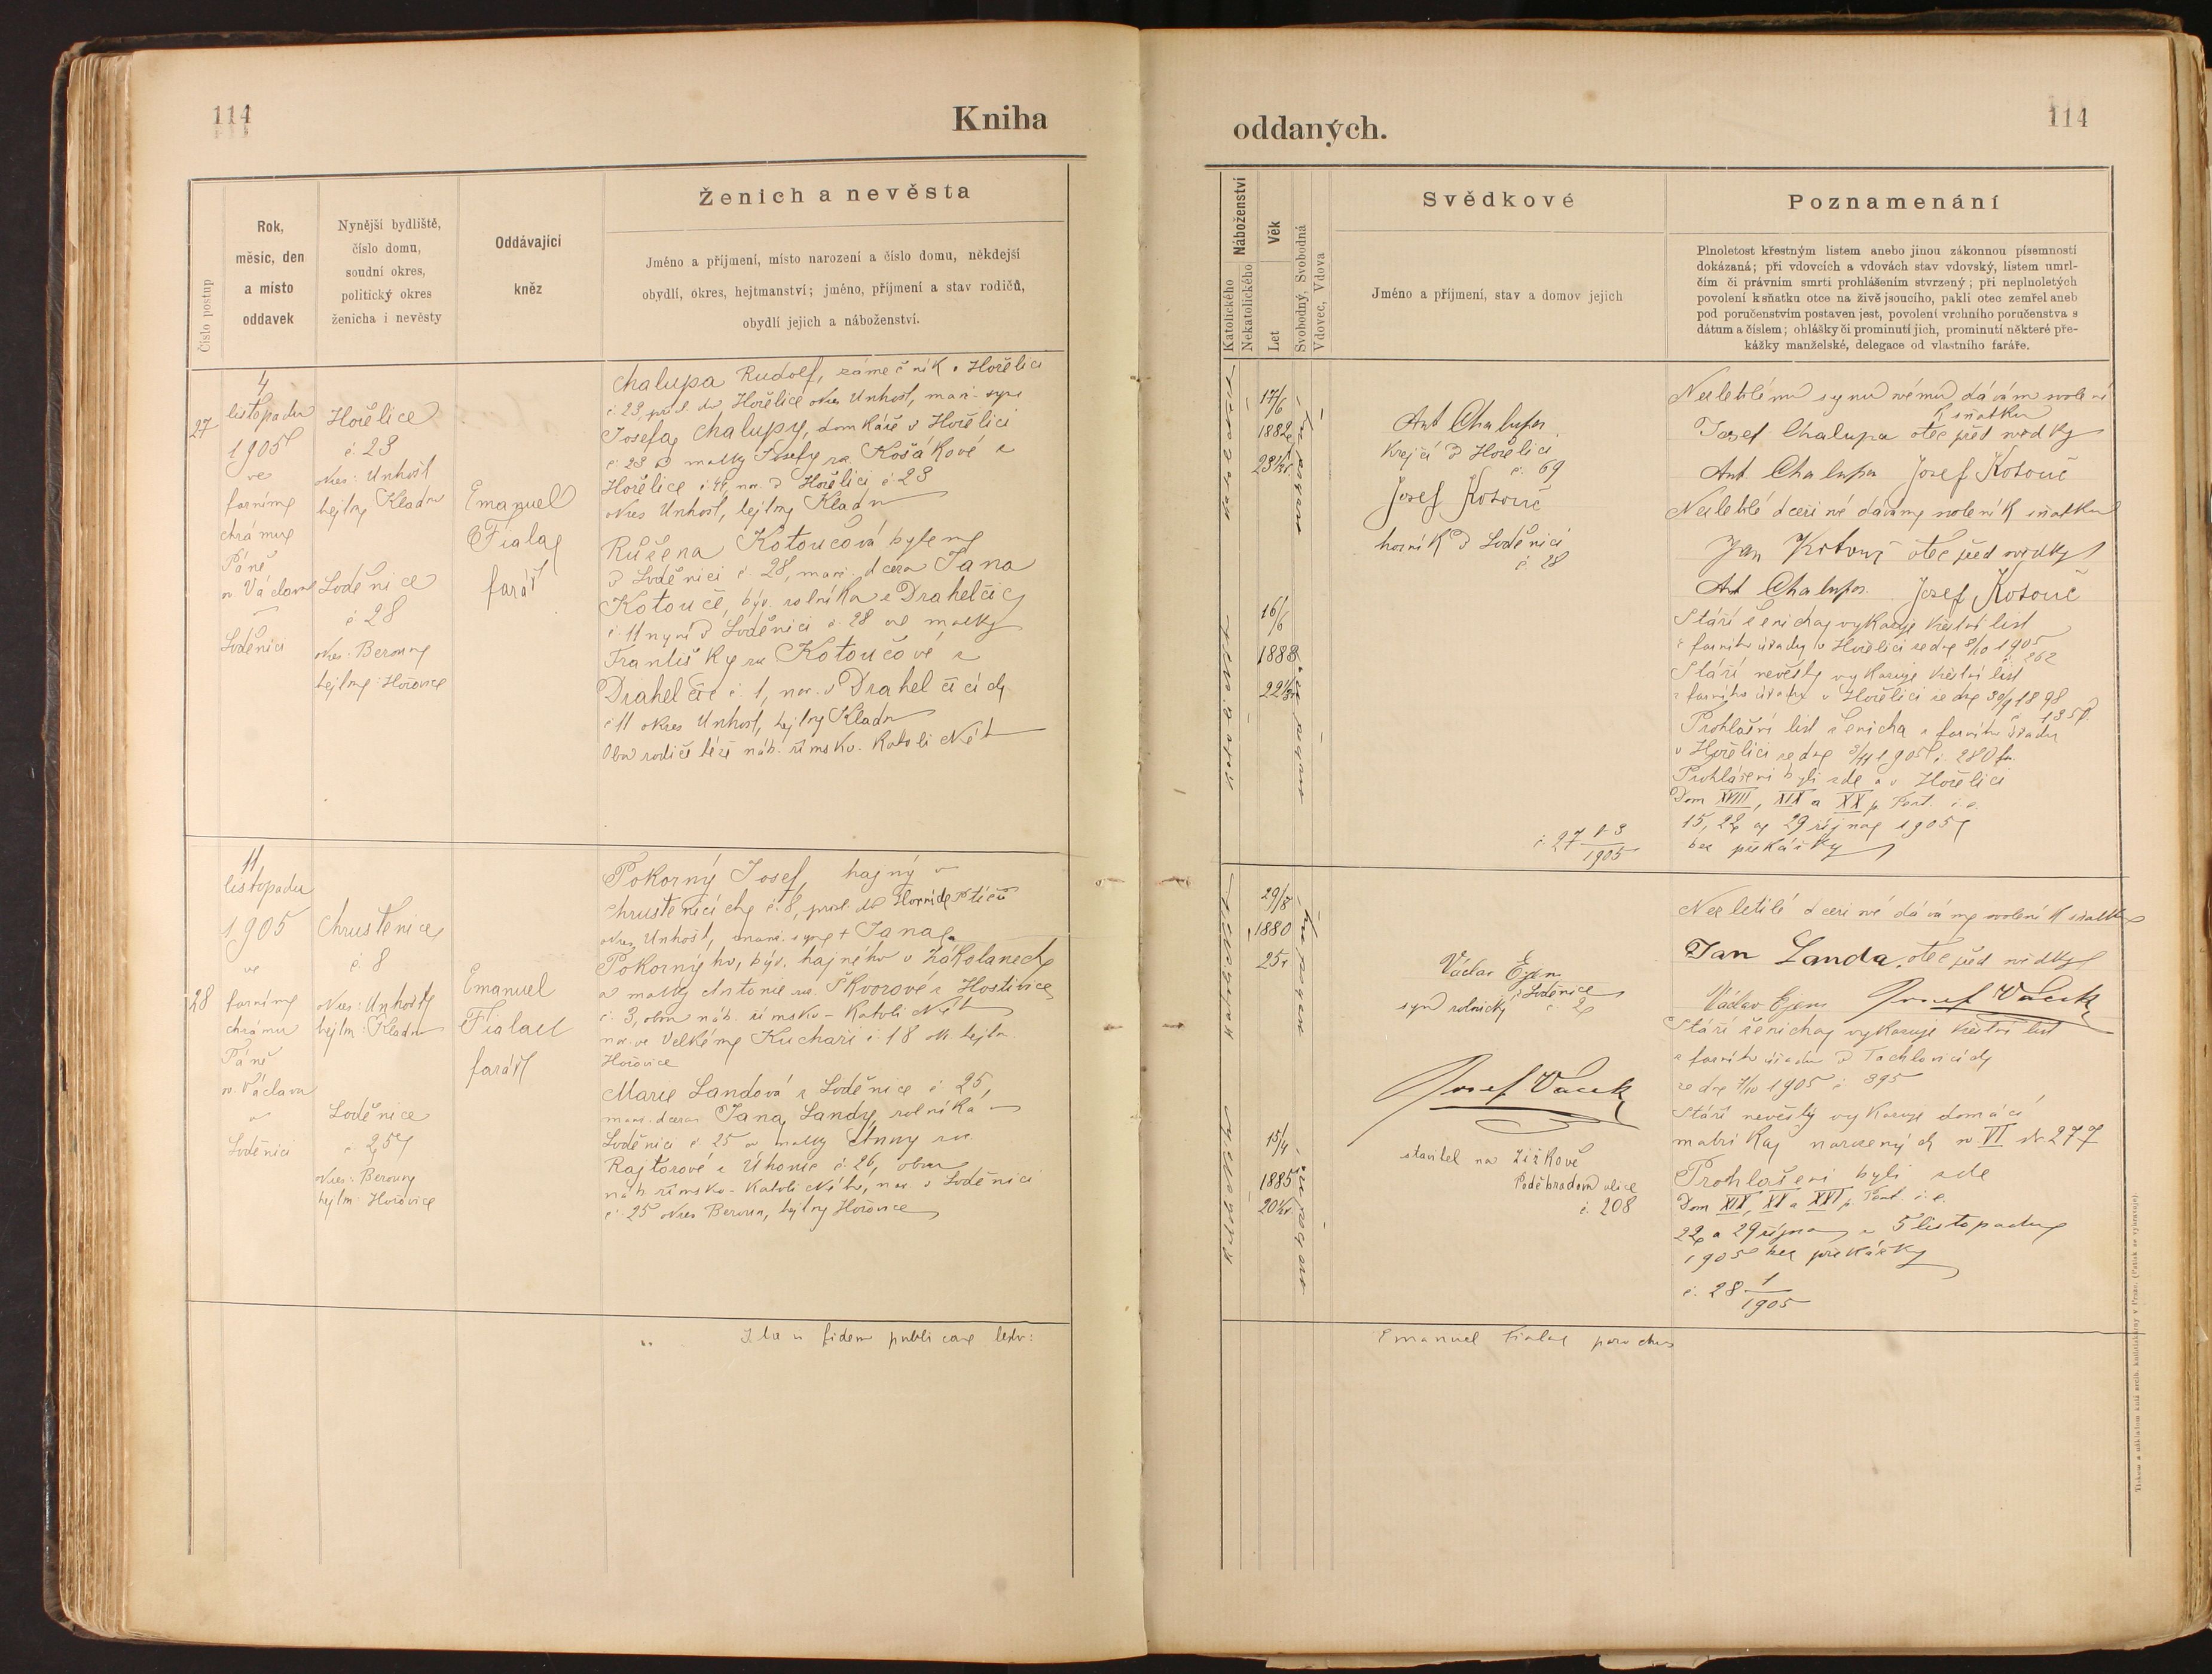 114
Kniha
Číslo postup
Rok,
měsíc, den
a místo
oddavek
Nynější bydliště,
číslo domu,
soudní okres,
politický okres
ženicha i nevěsty
Oddávající
kněz
Ženich a nevěsta
Jméno a příjmení, místo narození a číslo domu, někdejší
obydlí, okres, hejtmanství; jméno, příjmení a stav rodičů,
obydlí jejich a náboženství.
27
4
listopadu
1905
ve
farním
chrámu
Páně
sv. Václava
v
Loděnici
Hořelice
č. 23
okres: Unhošť
hejtm Kladno
Loděnice
č. 28
okres: Beroun
hejtm: Hořovice
Emanuel
Fiala
farář
Chalupa Rudolf, zámečník v Hořelici
č 23, přísl. do Hořelic okres Unhošť, manž. syn
Josefa Chalupy, domkáře v Hořelici
č. 23 a matky Josefy roz. Košákové z
Hořelice nar. v Hořelici č 23
okres Unhošť, hejtm Kladno
Růžena Kotoučová bytem
v Loděnici č. 28, manž. dcera Jana
Kotouče, býv. rolníka z Drahelčic
č. 11 nyní v Loděnici č. 28 a matky
Františky roz Kotoučové z
Drahelčic č. 1, nar. v Drahelčicích
č 11 okres Unhošť, hejtm Kladno
Oba rodiče též náb. římsko-katolického
11
listopadu
1905
ve
28
farním
chrámu
Páně
sv. Václava
v
Loděnici
Chrustenice
č. 8
okres: Unhošť
hejtm: Kladno
Loděnice
č. 25
okres: Beroun
hejtm: Hořovice
Emanuel
Fiala
farář
Pokorný Josef, hajný v
Chrustenicích č. 8, přísl. do
okres Unhošť, manž. syn + Jana
Pokorného, býv. hajného v Zákolanech
a matky Antonie roz. Škvorové z Hostivice
č. 3, obou náb. římsko-katolického
nar. ve Velkém Kuchaři č 18 hejtm.
Hořovice
Marie Landová z Loděnice č 25,
manž. dcera Jana Landy, rolníka v
Loděnici č. 25 a matky Anny roz
Rajtorové z Úhonic č. 26, obou
náb. římsko-katolického, nar. v Loděnici
č 25 okres Beroun, hejtm Hořovice
Ita in fidem publicam testor:
oddaných.
114
Náboženství
Katolického
Nekatolického
Věk
Let
Svobodný, Svobodná
Vdovec, Vdova
Svědkové
Jméno a příjmení, stav a domov jejich
Poznamenání
Plnoletost křestným listem anebo jinou zákonnou písemností
dokázaná; při vdovcích a vdovách stav vdovský, listem umrl-
čím či právním smrti prohlášením stvrzený; při neplnoletých
povolení k sňatku otce na živě jsoucího, pakli otec zemřel aneb
pod poručenstvím postaven jest, povolení vrchního poručenstva s
dátum a číslem; ohlášky či prominutí jich, prominutí některé pře-
kážky manželské, delegace od vlastního faráře.
17/6
1882
23
16/6
1883
22
Ant Chalupa
krejčí v Hořelici
č. 69
Josef Kotouč
horník v Loděnici
č 28
č 27
1905
Nezletilému synu mému dávám svolení
k sňatku
Josef Chalupa otec před svědky
Ant Chalupa Josef Kotouč
Nezletilé dceři mé dávám svolení k sňatku
Jan Kotouč otec před svědky
Ant Chalupa Josef Kotouč
Stáří ženicha vykazuje křestní list
z farního úřadu v Hořelici ze dne 8/10 1905
č. 262
Stáří nevěsty vykazuje křestní list
z farního úřadu v Hořelici ze dne 30/9 1898
Prohlašní list ženicha z farního úřadu
v Hořelici ze dne 3/11 1905 č. 280
Prohlášeni byli zde a v Hořelici
Dom XVIII, XIX a XX p. Pent. i. e.
15, 22 a 29 října 1905
bez překážky
29/8
1880
25
15/4
1885
20
Václav Egen
z Loděnice
syn rolnický č. 2
Josef Vacek
stavitel na Žižkově
Poděbradova ulice
č. 208
Nezletilé dceři mé dávám svolení k sňatku
Jan Landa, otec před svědky
Václav Egen Josef Vacek
Stáří ženicha vykazuje křestní list
z farního úřadu v Tachlovicích
ze dne 7/10 1905 č 395
Stáří nevěsty vykazuje domácí
matrika narozených sv. VI str. 277
Prohlášeni byli zde
Dom XIX, XX a XXI p. Pent. i. e.
22 a 29 října a 5 listopadu
1905 bez překážky
č. 28 1
1905
Emanuel Fiala parochus